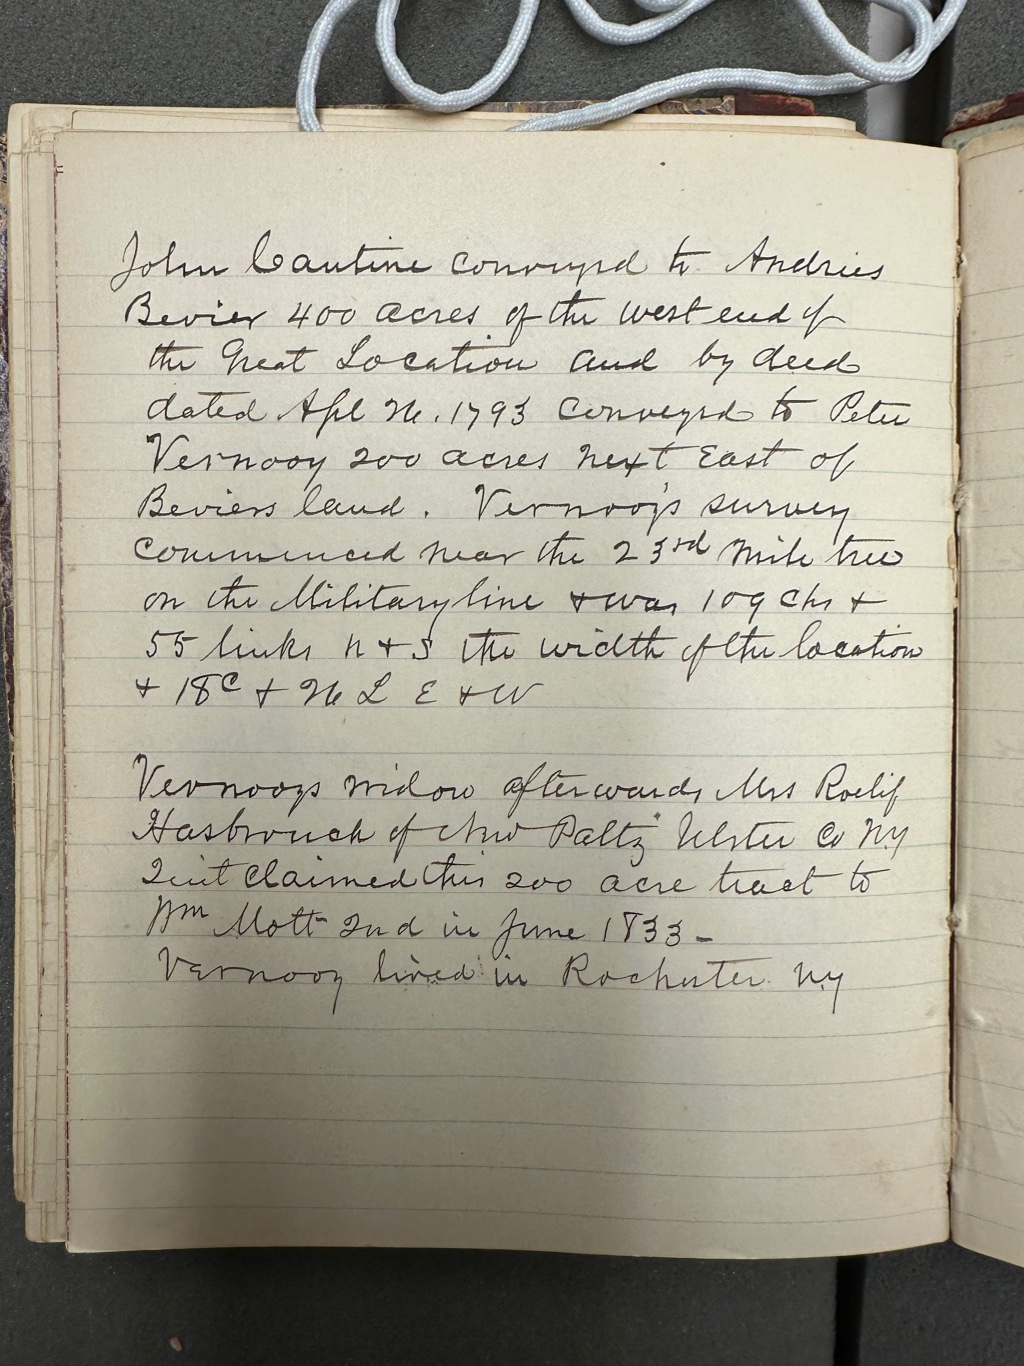 John Cantine conveyed to Andries
Bevier 400 acres of the west end of
the Great Location and by deed
dated Apl 26. 1793 conveyed to Peter
Vernooy 200 acres next East of
Beviers land. Vernooy's survey
commenced near the 23rd Mile tree
on the Military line & was 109 chs &
55 links N & S the width of the location
& 18c & 26 L E & W
Vernooys widow afterwards Mrs Roelif
Hasbrouck of New Paltz Ulster Co N.Y
Quit claimed this 200 acre tract to
Wm Mott 2nd in June 1833 -
Vernooy lived in Rochester N.Y